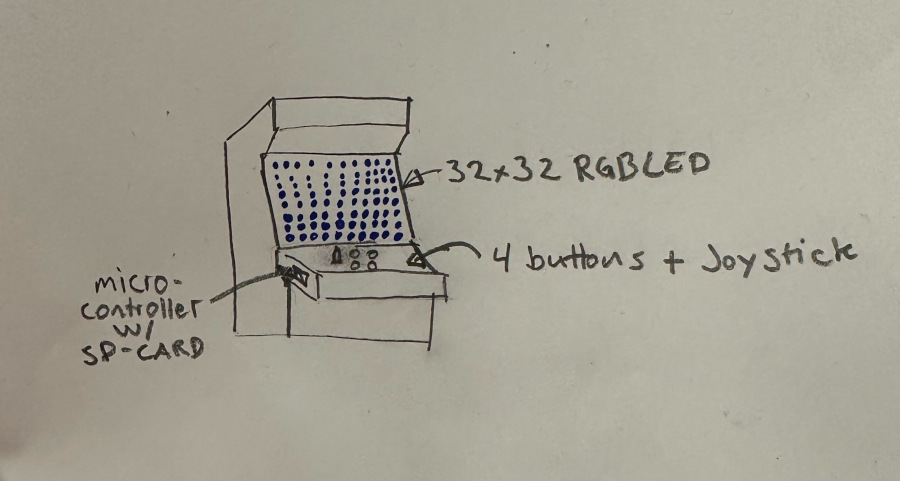 32x32 RGBLED
4 buttons + Joystick
micro-
controller
w/
SD-CARD